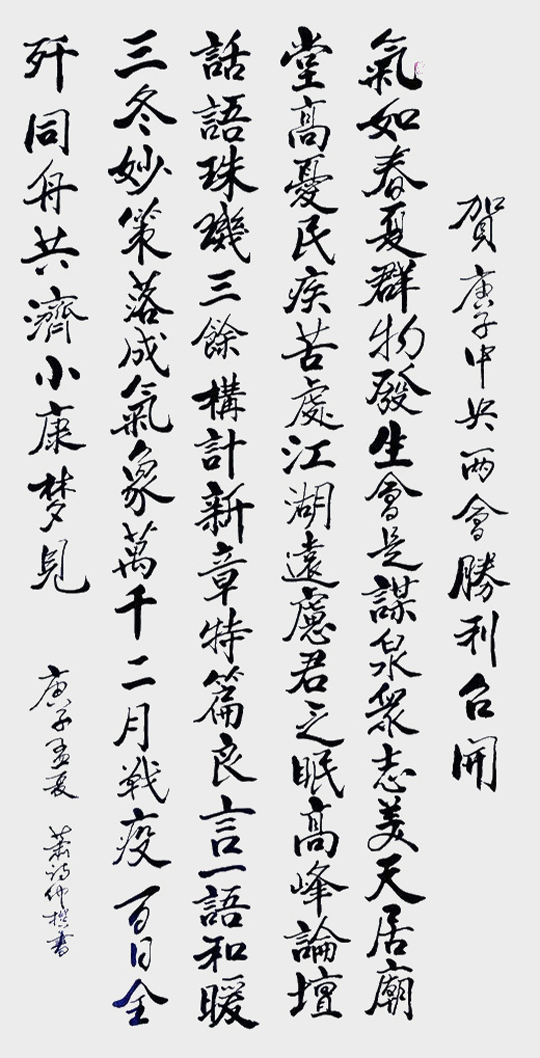 賀庚子中央两會勝利召開
氣如春夏群物發生會是謀泉衆志美天居廟
堂高憂民疾苦處江湖遠慮君之眠高峰論壇
話語珠璣三餘構計新章特篇良言一語和暖
三冬妙策落成氣象萬千二月戰疫百日全
歼同舟共濟小康梦見
庚子孟夏 蕭詩仲撰書